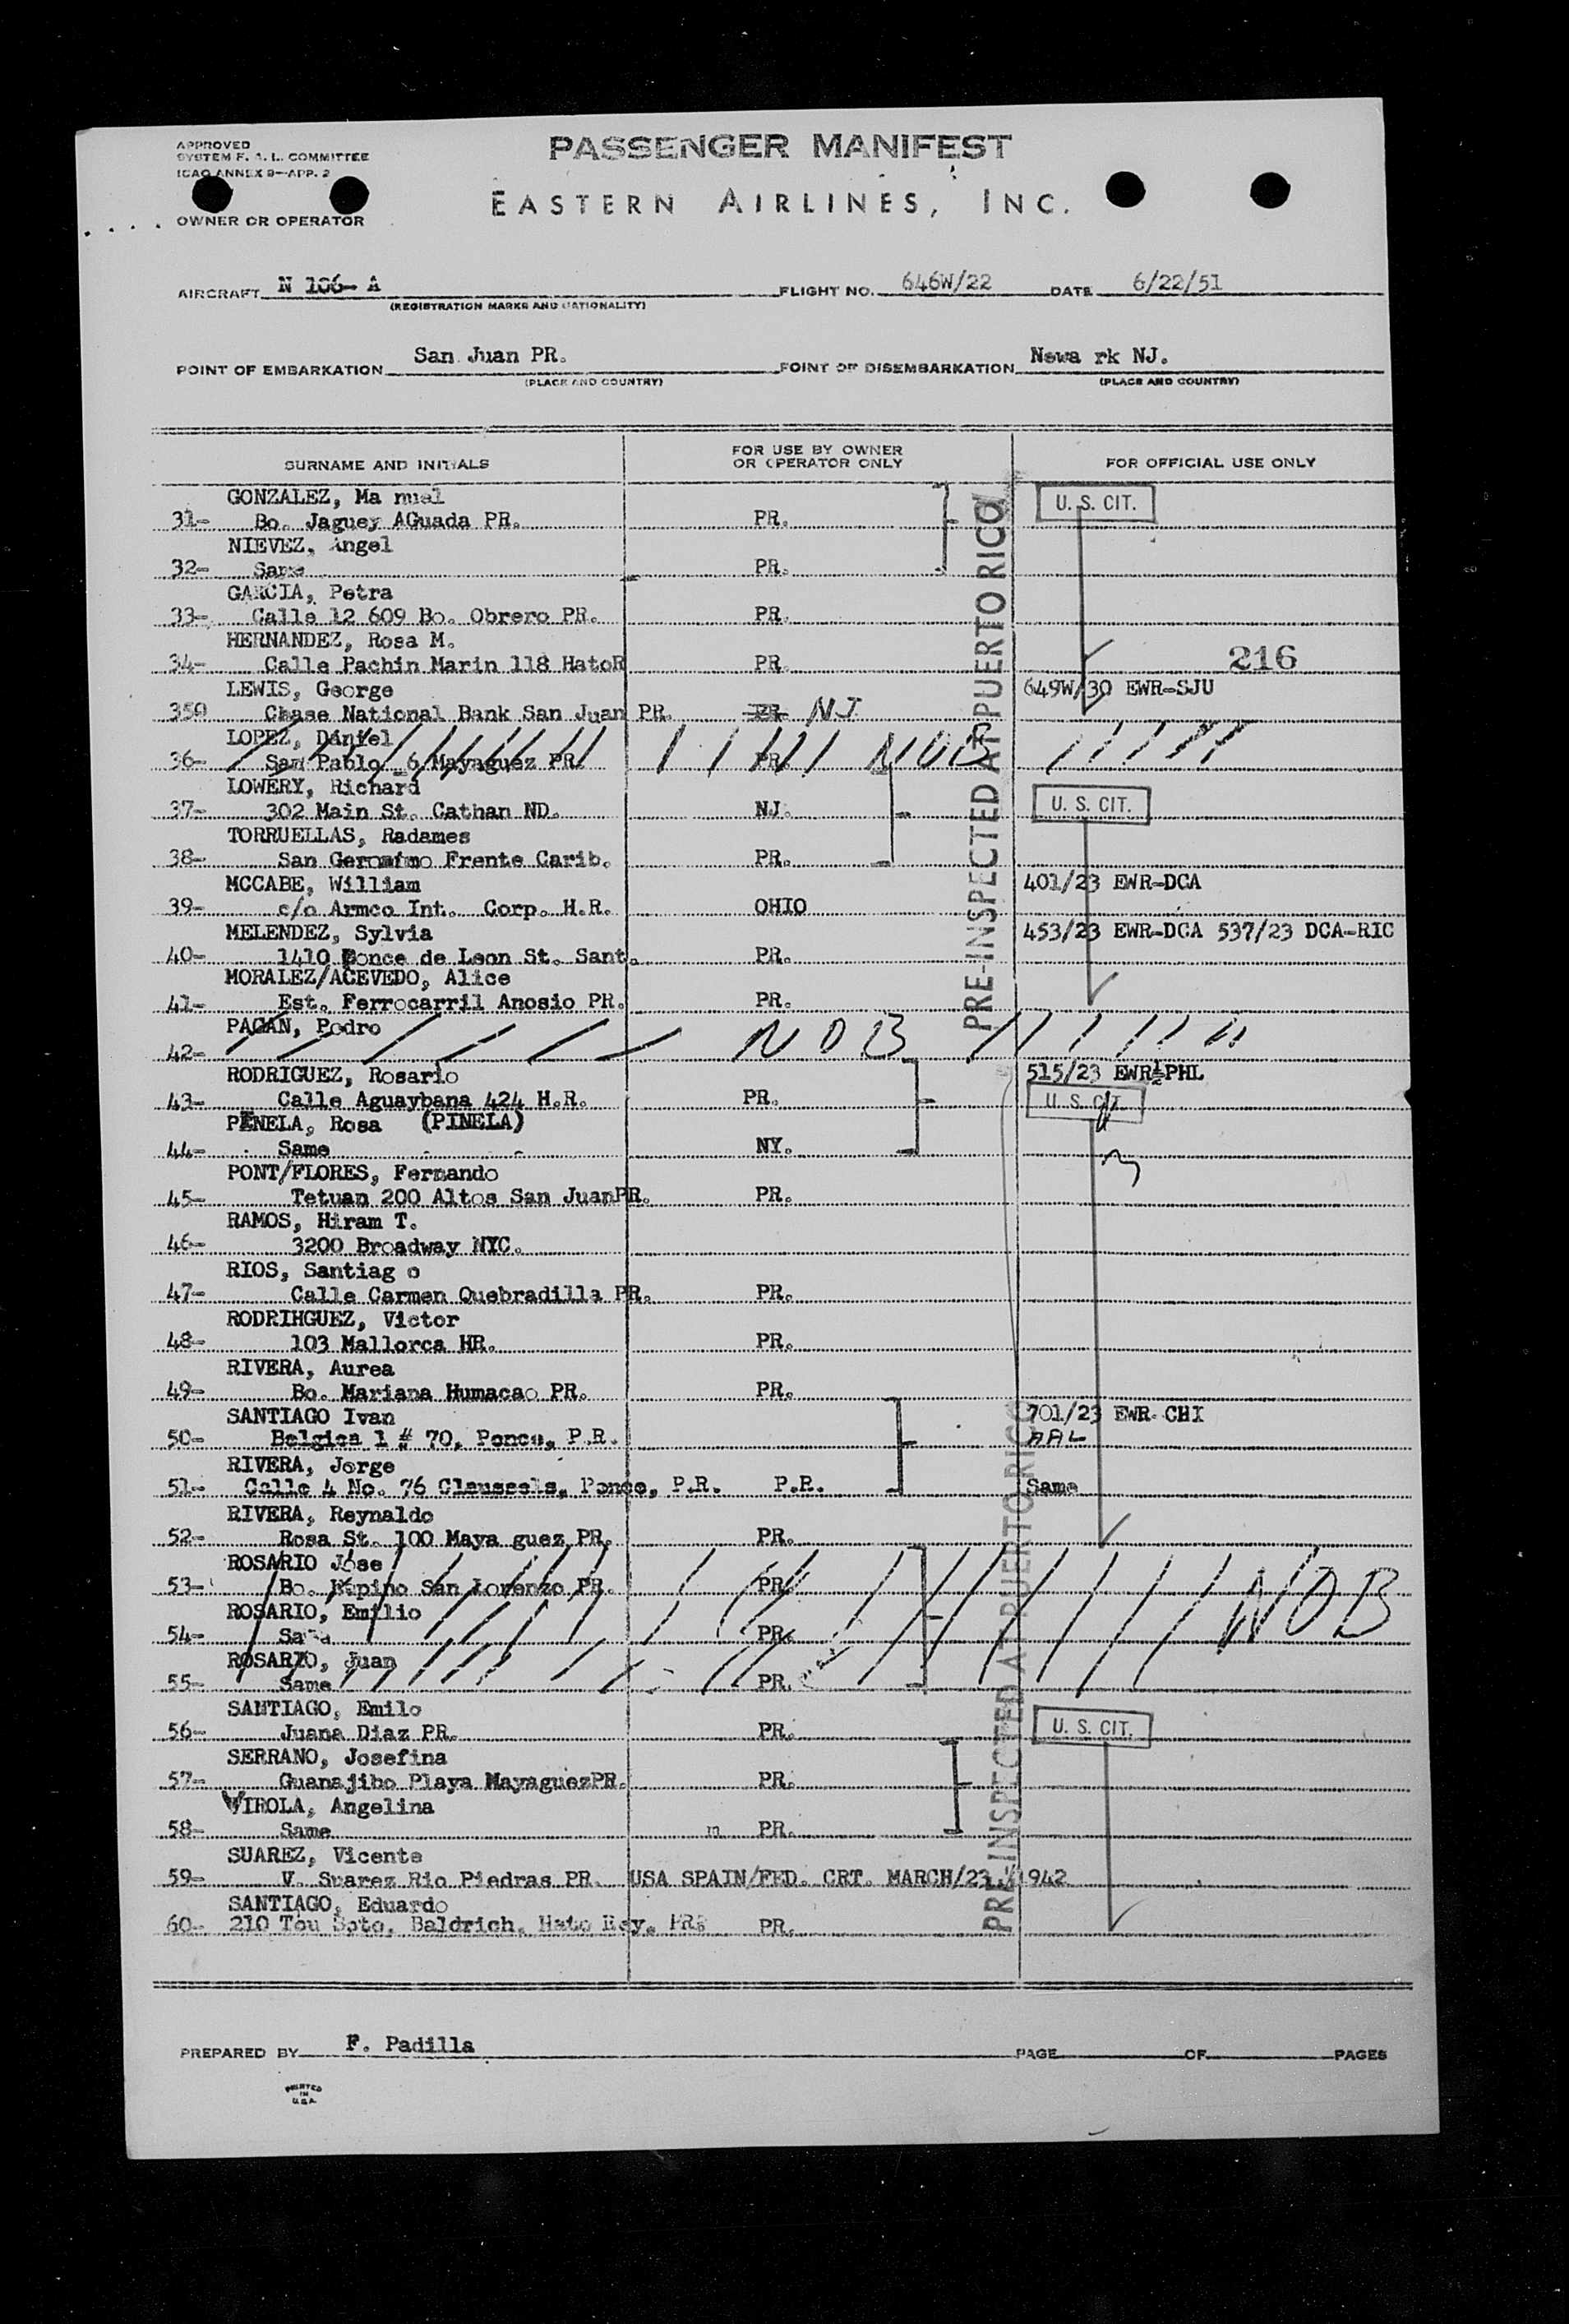 APPROVED
SYSTEM F. A. L. COMMITTEE
ICAO ANNEX 9—APP. 2
PASSENGER MANIFEST
EASTERN AIRLINES, INC.
OWNER OR OPERATOR
AIRCRAFT N 106- A FLIGHT NO. 646W/22 DATE 6/22/51
(REGISTRATION MARKS AND NATIONALITY)
POINT OF EMBARKATION San Juan PR. POINT OF DISEMBARKATION Newa rk NJ.
(PLACE AND COUNTRY) (PLACE AND COUNTRY)
SURNAME AND INITIALS FOR USE BY OWNER OR OPERATOR ONLY FOR OFFICIAL USE ONLY
GONZALEZ, Ma nuel U. S. CIT.
31- Bo. Jaguey AGuada PR. PR.
NIEVEZ, Angel
32- Same PR.
GARCIA, Petra
33- Calle 12 609 Bo. Obrero PR. PR.
HERNANDEZ, Rosa M.
34- Calle Pachin Marin 118 HatoR PR. 216
LEWIS, George 649W/30 EWR-SJU
350 Chase National Bank San Juan PR. PR. NJ
LOPEZ, Daniel
36- San Pablo 6 Mayaguez PR. PR. NOB
LOWERY, Richard
37- 302 Main St. Cathan ND. NJ. U. S. CIT.
TORRUELLAS, Radames
38- San Geronimo Frente Carib. PR.
MCCABE, William 401/23 EWR-DCA
39- c/o Armco Int. Corp. H.R. OHIO
MELENDEZ, Sylvia 453/23 EWR-DCA 537/23 DCA-RIC
40- 1410 Ponce de Leon St. Sant. PR.
MORALEZ/ACEVEDO, Alice
41- Est. Ferrocarril Anosio PR. PR.
PRE-INSPECTED AT PUERTO RICO
PAGAN, Pedro
42- NOB
RODRIGUEZ, Rosario 515/23 EWR½PHL
43- Calle Aguaybana 424 H.R. PR. U. S. CIT.
PENELA, Rosa (PINELA)
44- Same NY.
PONT/FLORES, Fernando
45- Tetuan 200 Altos San JuanPR. PR.
RAMOS, Hiram T.
46- 3200 Broadway NYC.
RIOS, Santiag o
47- Calle Carmen Quebradilla PR. PR.
RODRIHGUEZ, Victor
48- 103 Mallorca HR. PR.
RIVERA, Aurea
49- Bo. Mariana Humacao PR. PR.
SANTIAGO Ivan 701/23 EWR-CHI
50- Belgica 1 # 70, Ponce, P.R. AAL
RIVERA, Jorge
51- Calle 4 No. 76 Claussels, Ponce, P.R. P.R. Same
RIVERA, Reynaldo
52- Rosa St. 100 Maya guez PR. PR.
ROSARIO Jose
53- Bo. Espino San Lorenzo PR. PR. NOB
ROSARIO, Emilio
54- Same PR.
ROSARIO, Juan
55- Same PR.
SANTIAGO, Emilo
56- Juana Diaz PR. PR. U. S. CIT.
SERRANO, Josefina
57- Guanajibo Playa MayaguezPR. PR.
VIROLA, Angelina
58- Same m PR.
SUAREZ, Vicente
59- V. Suarez Rio Piedras PR. USA SPAIN/FED. CRT. MARCH/23,/1942
SANTIAGO, Eduardo
60- 210 Tou Soto, Baldrich, Hato Rey, PR. PR.
PRE-INSPECTED AT PUERTO RICO
PREPARED BY F. Padilla PAGE OF PAGES
PRINTED
IN
U.S.A.